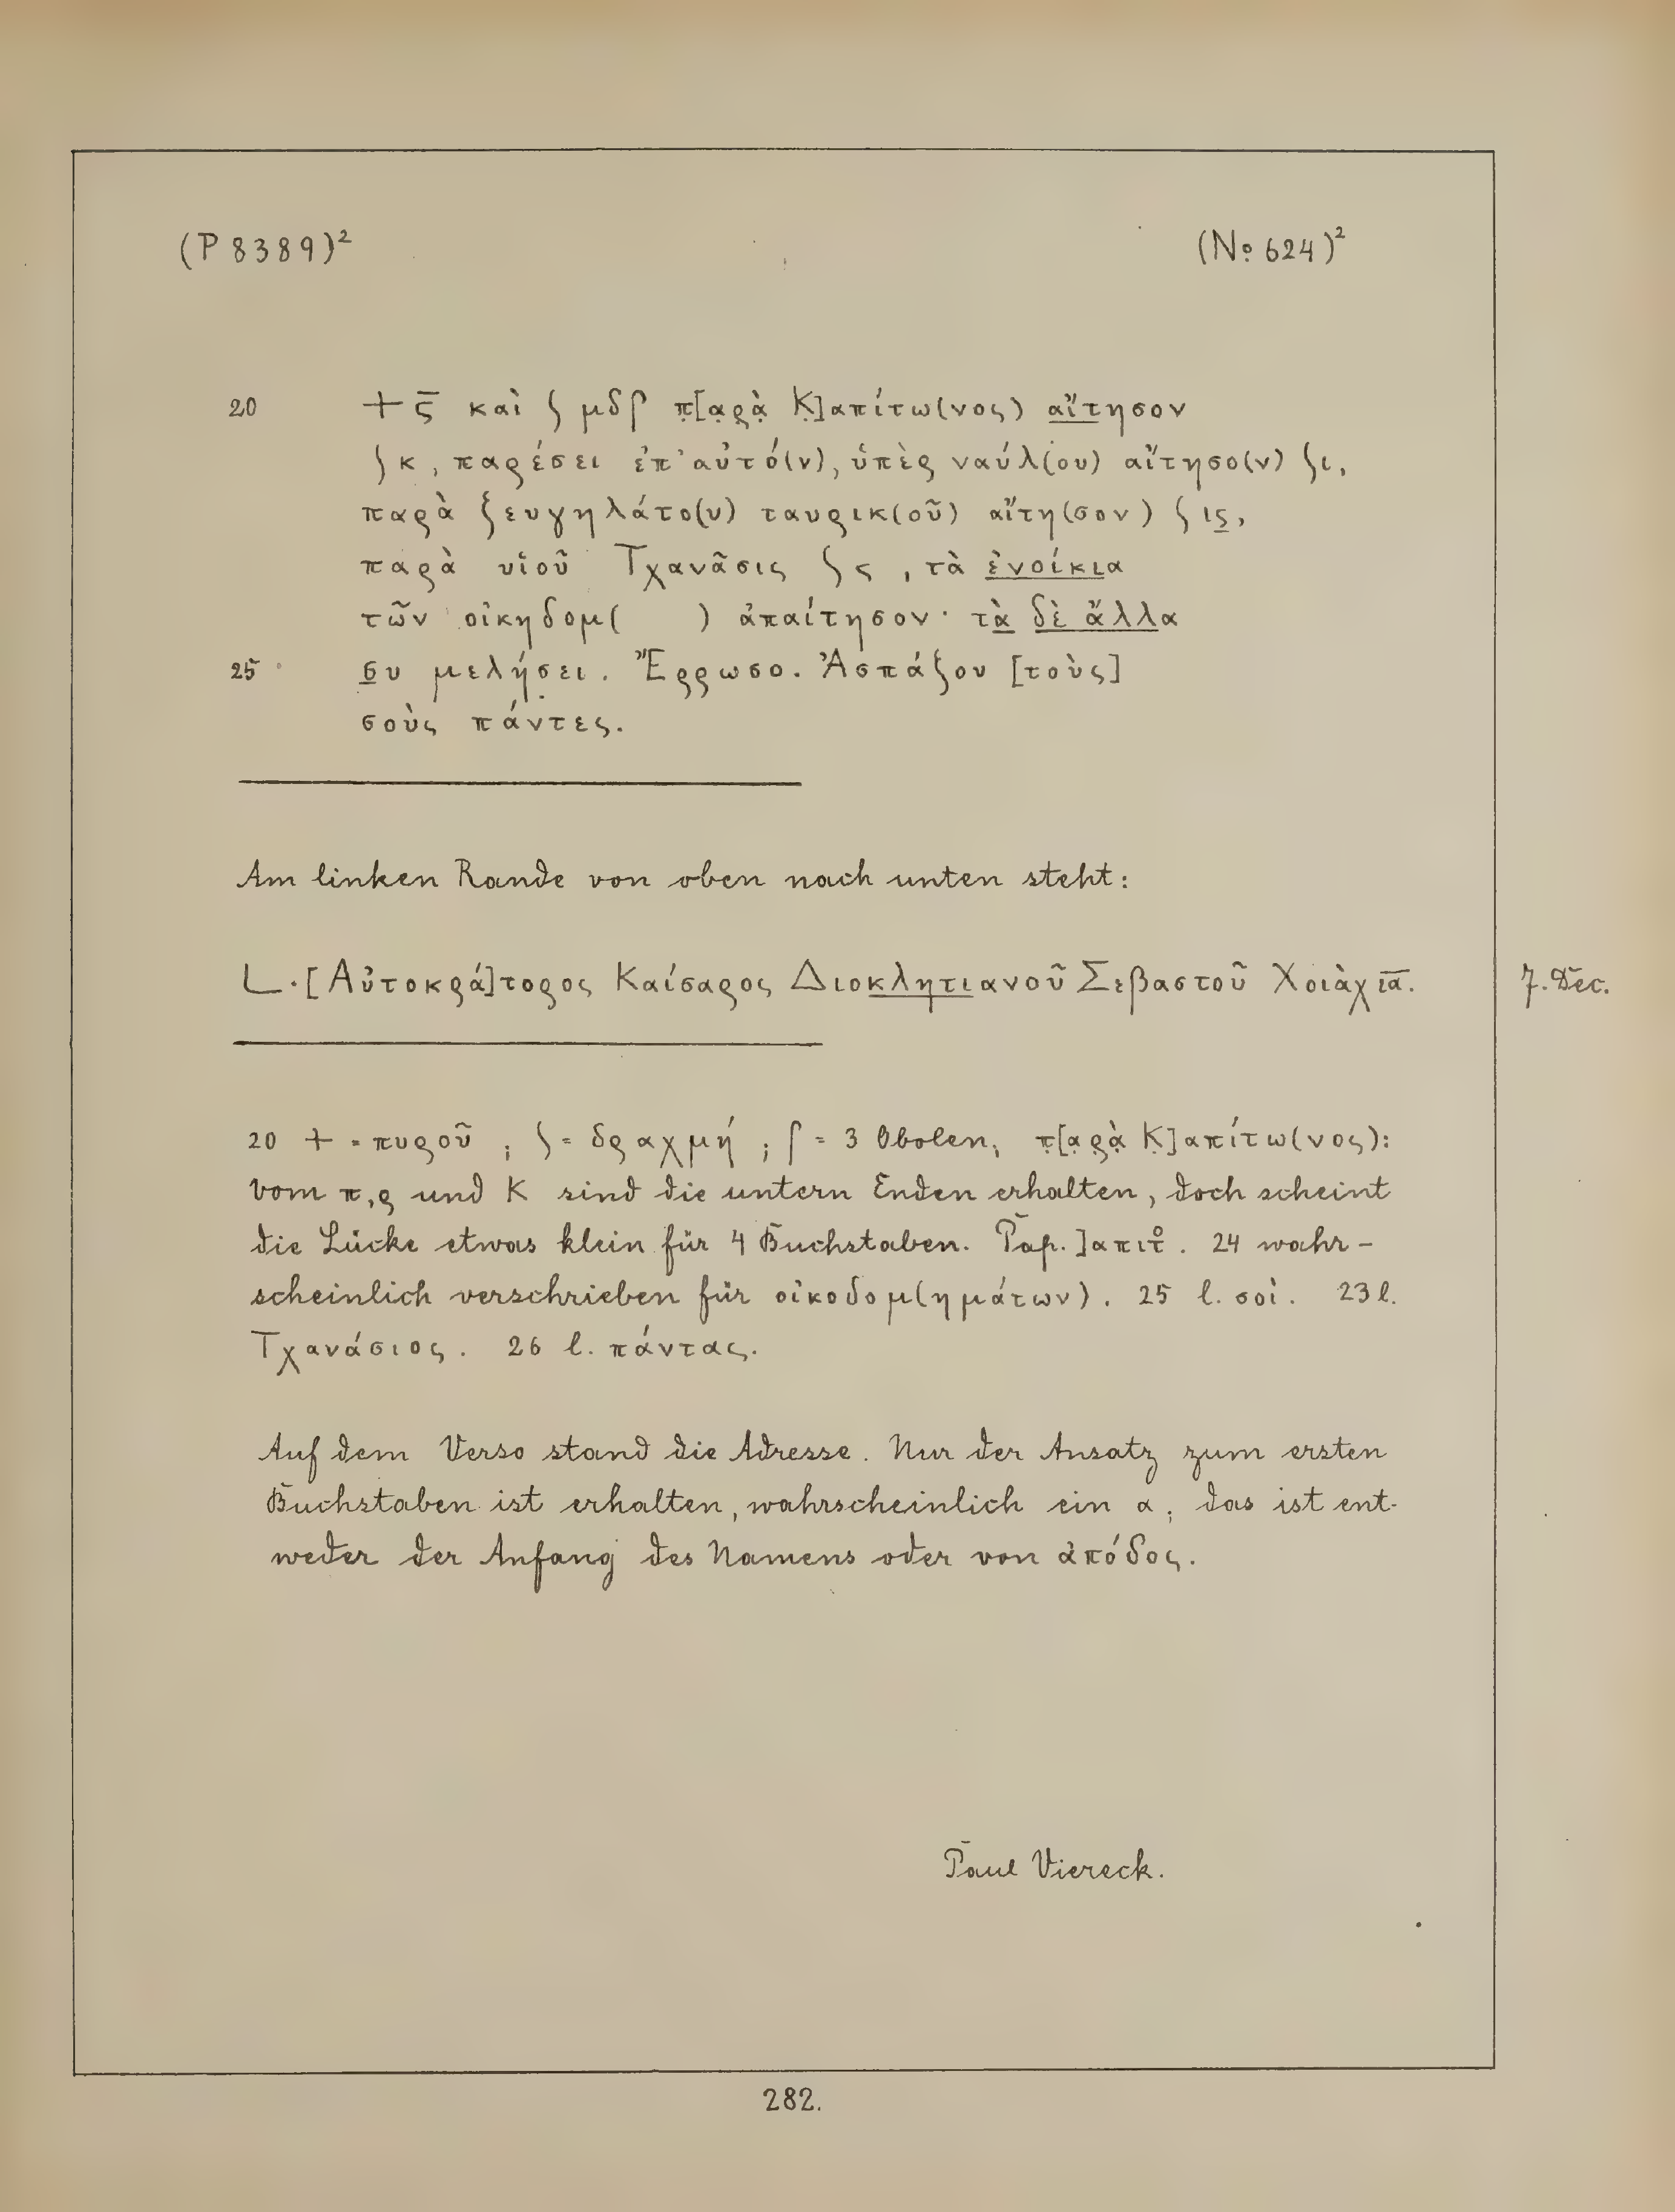 (P 8389)² (Nº 624)²
20 + ϛ̅ καὶ ʃ μδʃ π̣[α̣ρ̣ὰ̣ Κ̣]απίτω(νος) αἴτησον
ʃ κ, παρέσει ἐπ' αὐτό(ν), ὑπὲρ ναύλ(ου) αἴτησο(ν) ʃ ι,
παρὰ ζευγηλάτο(υ) ταυρικ(οῦ) αἴτη(σον) ʃ ιϛ,
παρὰ υἱοῦ Τχανᾶσις ʃ ϛ, τὰ ἐνοίκια
τῶν οἰκηδομ( ) ἀπαίτησον· τὰ δὲ ἄλλα
25 συ μελήσει. Ἔρρωσο. Ἀσπάζου [τοὺς]
σοὺς πάντες.
Am linken Rande von oben nach unten steht:
L.[Αὐτοκρά]τορος Καίσαρος Διοκλητιανοῦ Σεβαστοῦ Χοιὰχ ι̅α̅. 7. Dec.
20 + = πυροῦ; ʃ = δραχμή; ʃ = 3 Obolen; π̣[α̣ρ̣ὰ̣ Κ̣]απίτω(νος):
vom π, ρ und Κ sind die untern Enden erhalten, doch scheint
die Lücke etwas klein für 4 Buchstaben. Pap. ]απιτ̊. 24 wahr-
scheinlich verschrieben für οἰκοδομ(ημάτων). 25 l. σοὶ. 23 l.
Τχανάσιος. 26 l. πάντας.
Auf dem Verso stand die Adresse. Nur der Ansatz zum ersten
Buchstaben ist erhalten, wahrscheinlich ein α; das ist ent-
weder der Anfang des Namens oder von ἀπόδος.
Paul Viereck.
282.